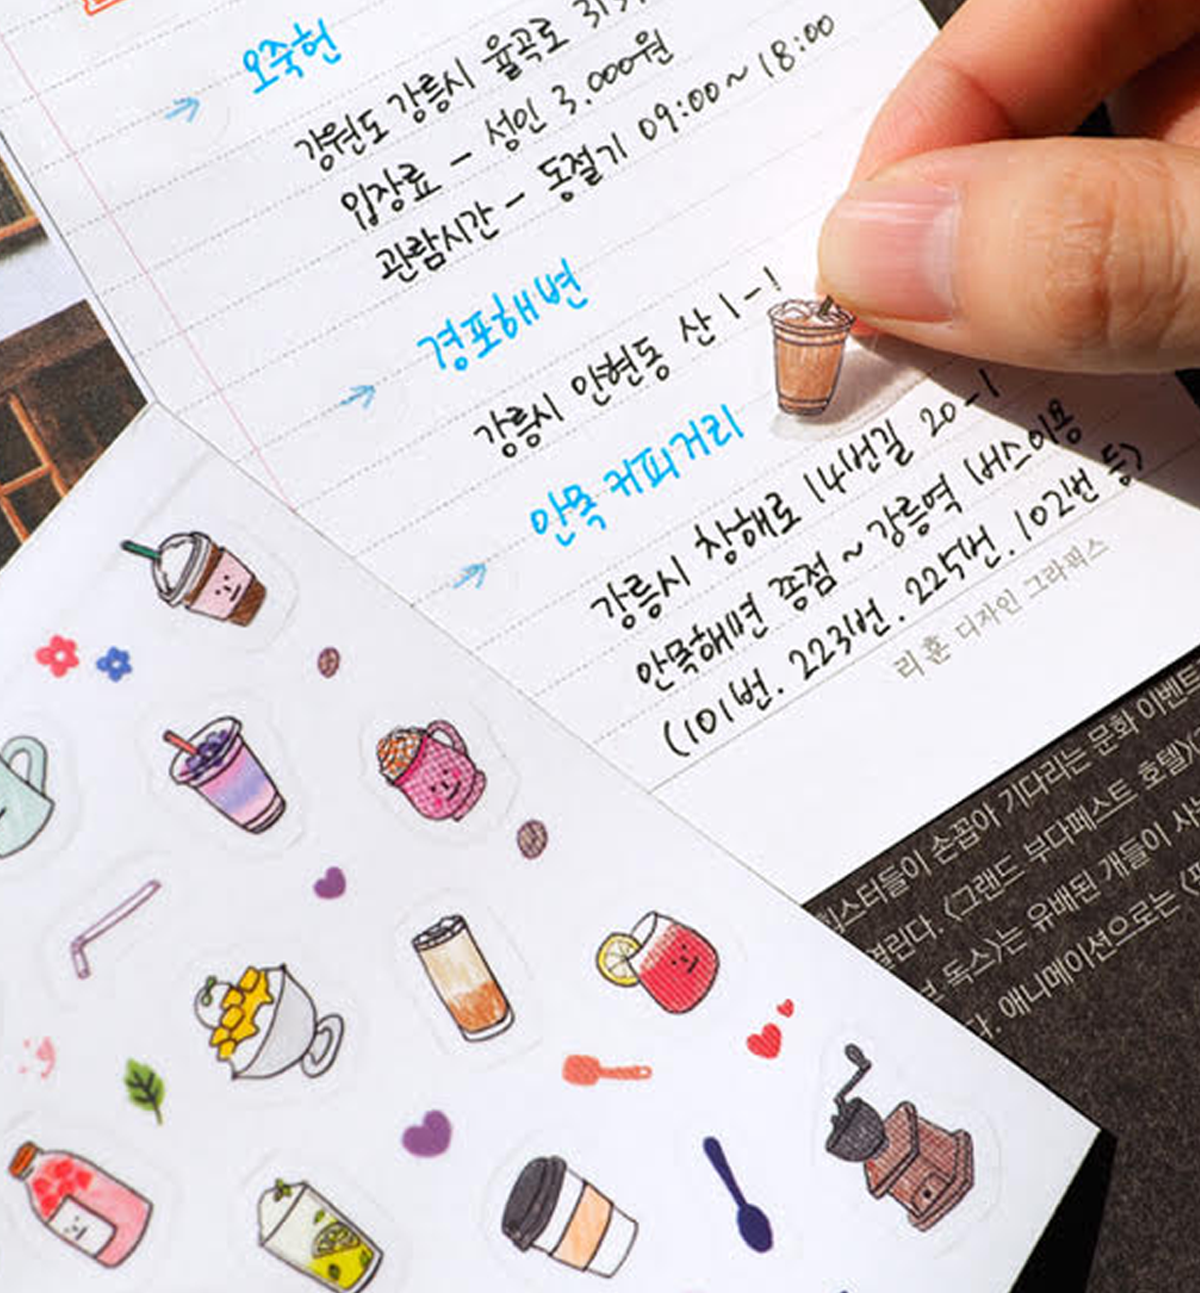 오죽헌
강원도 강릉시 율곡로
입장료 - 성인 3.000원
관람시간 - 동절기 09:00~18:00
경포해변
강릉시 안현동 산 1-1
안목 커피거리
강릉시 창해로 14번길 20-1
안목해변 종점 ~ 강릉역 버스이용
(101번. 223번. 225번. 102번 등)
리훈 디자인 그라픽스
힙스터들이 손꼽아 기다리는 문화 이벤트
열린다. <그랜드 부다페스트 호텔>
독스>는 유배된 개들이
다. 애니메이션으로는